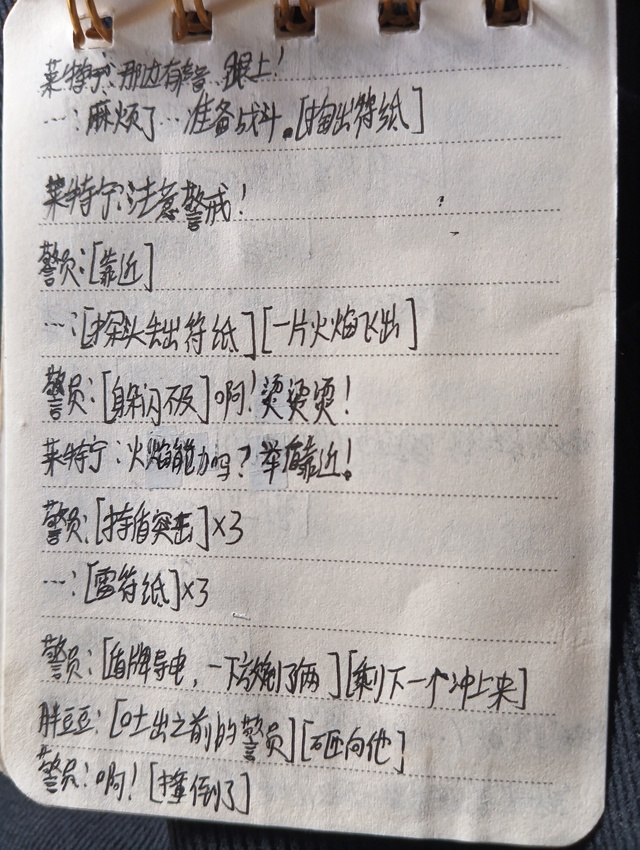 莱特宁:那边有声音、跟上!
…:麻烦了…准备战斗。[掏出符纸]
莱特宁:注意警戒!
警员:[靠近]
…:[探头丢出符纸][一片火焰飞出]
警员:[躲闪不及]啊!烫烫烫!
莱特宁:火焰能力吗?举盾靠近!
警员:[持盾突击]×3
…:[雷符纸]×3
警员:[盾牌导电,一下放倒了俩][剩下一个冲上来]
胖豆豆:[吐出之前的警员][砸向他]
警员:啊![撞倒了]